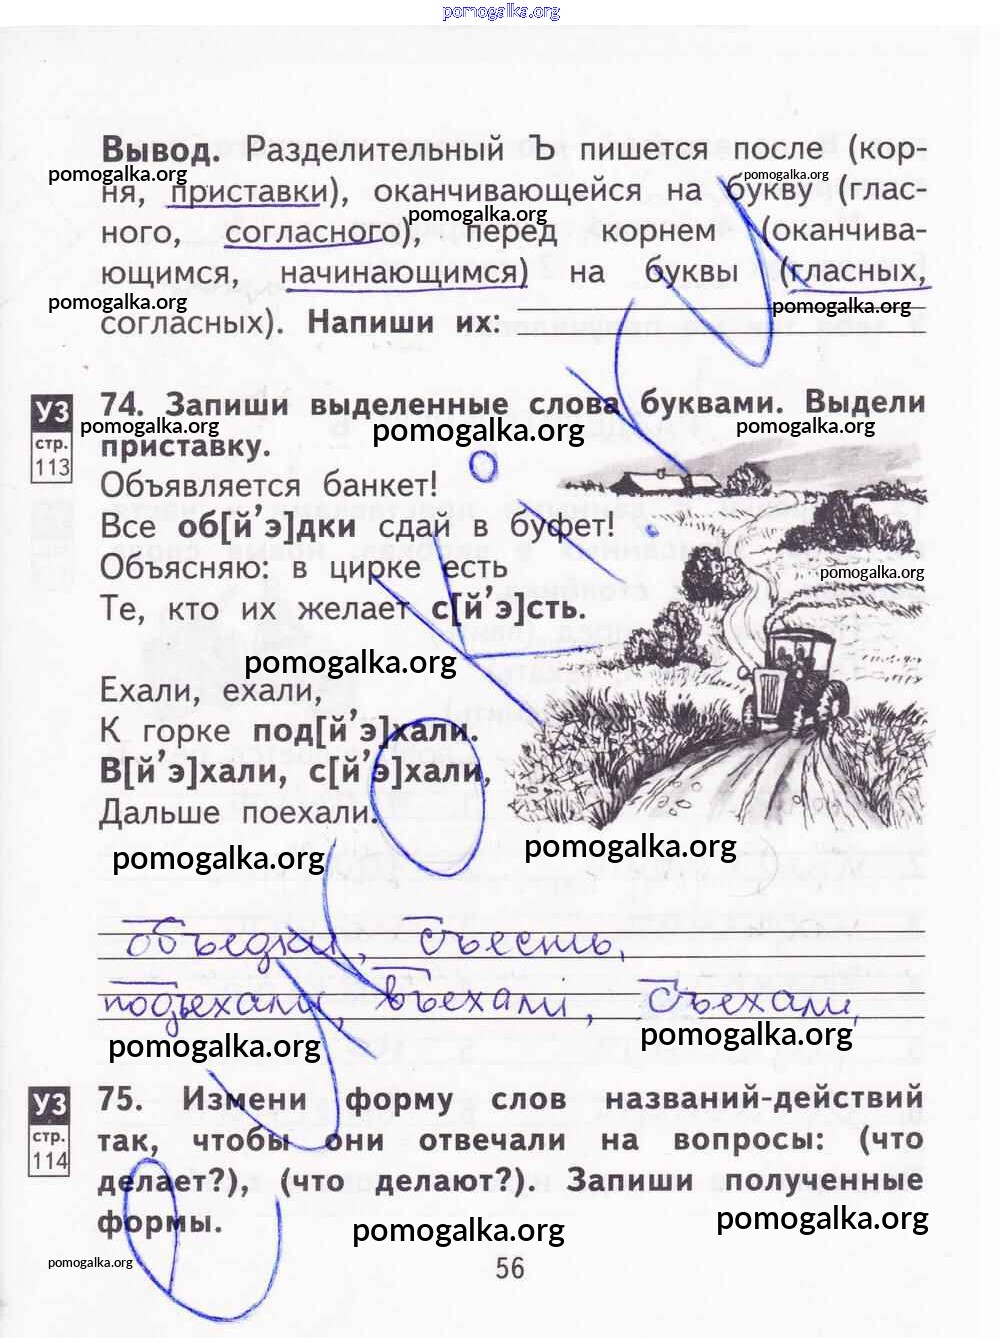 pomogalka.org
Вывод. Разделительный Ъ пишется после (кор-
pomogalka.org pomogalka.org
ня, приставки), оканчивающейся на букву (глас-
pomogalka.org
ного, согласного), перед корнем (оканчива-
ющимся, начинающимся) на буквы (гласных,
pomogalka.org pomogalka.org
согласных). Напиши их:
УЗ
стр.
113
74. Запиши выделенные слова буквами. Выдели
pomogalka.org pomogalka.org pomogalka.org
приставку.
Объявляется банкет!
Все об[й’э]дки сдай в буфет!
Объясняю: в цирке есть
pomogalka.org
Те, кто их желает с[й’э]сть.
pomogalka.org
Ехали, ехали,
К горке под[й’э]хали.
В[й’э]хали, с[й’э]хали,
Дальше поехали.
pomogalka.org pomogalka.org
объедки, съесть,
подъехали, въехали, съехали,
pomogalka.org pomogalka.org
УЗ
стр.
114
75. Измени форму слов названий-действий
так, чтобы они отвечали на вопросы: (что
делает?), (что делают?). Запиши полученные
формы.
pomogalka.org pomogalka.org
pomogalka.org
56